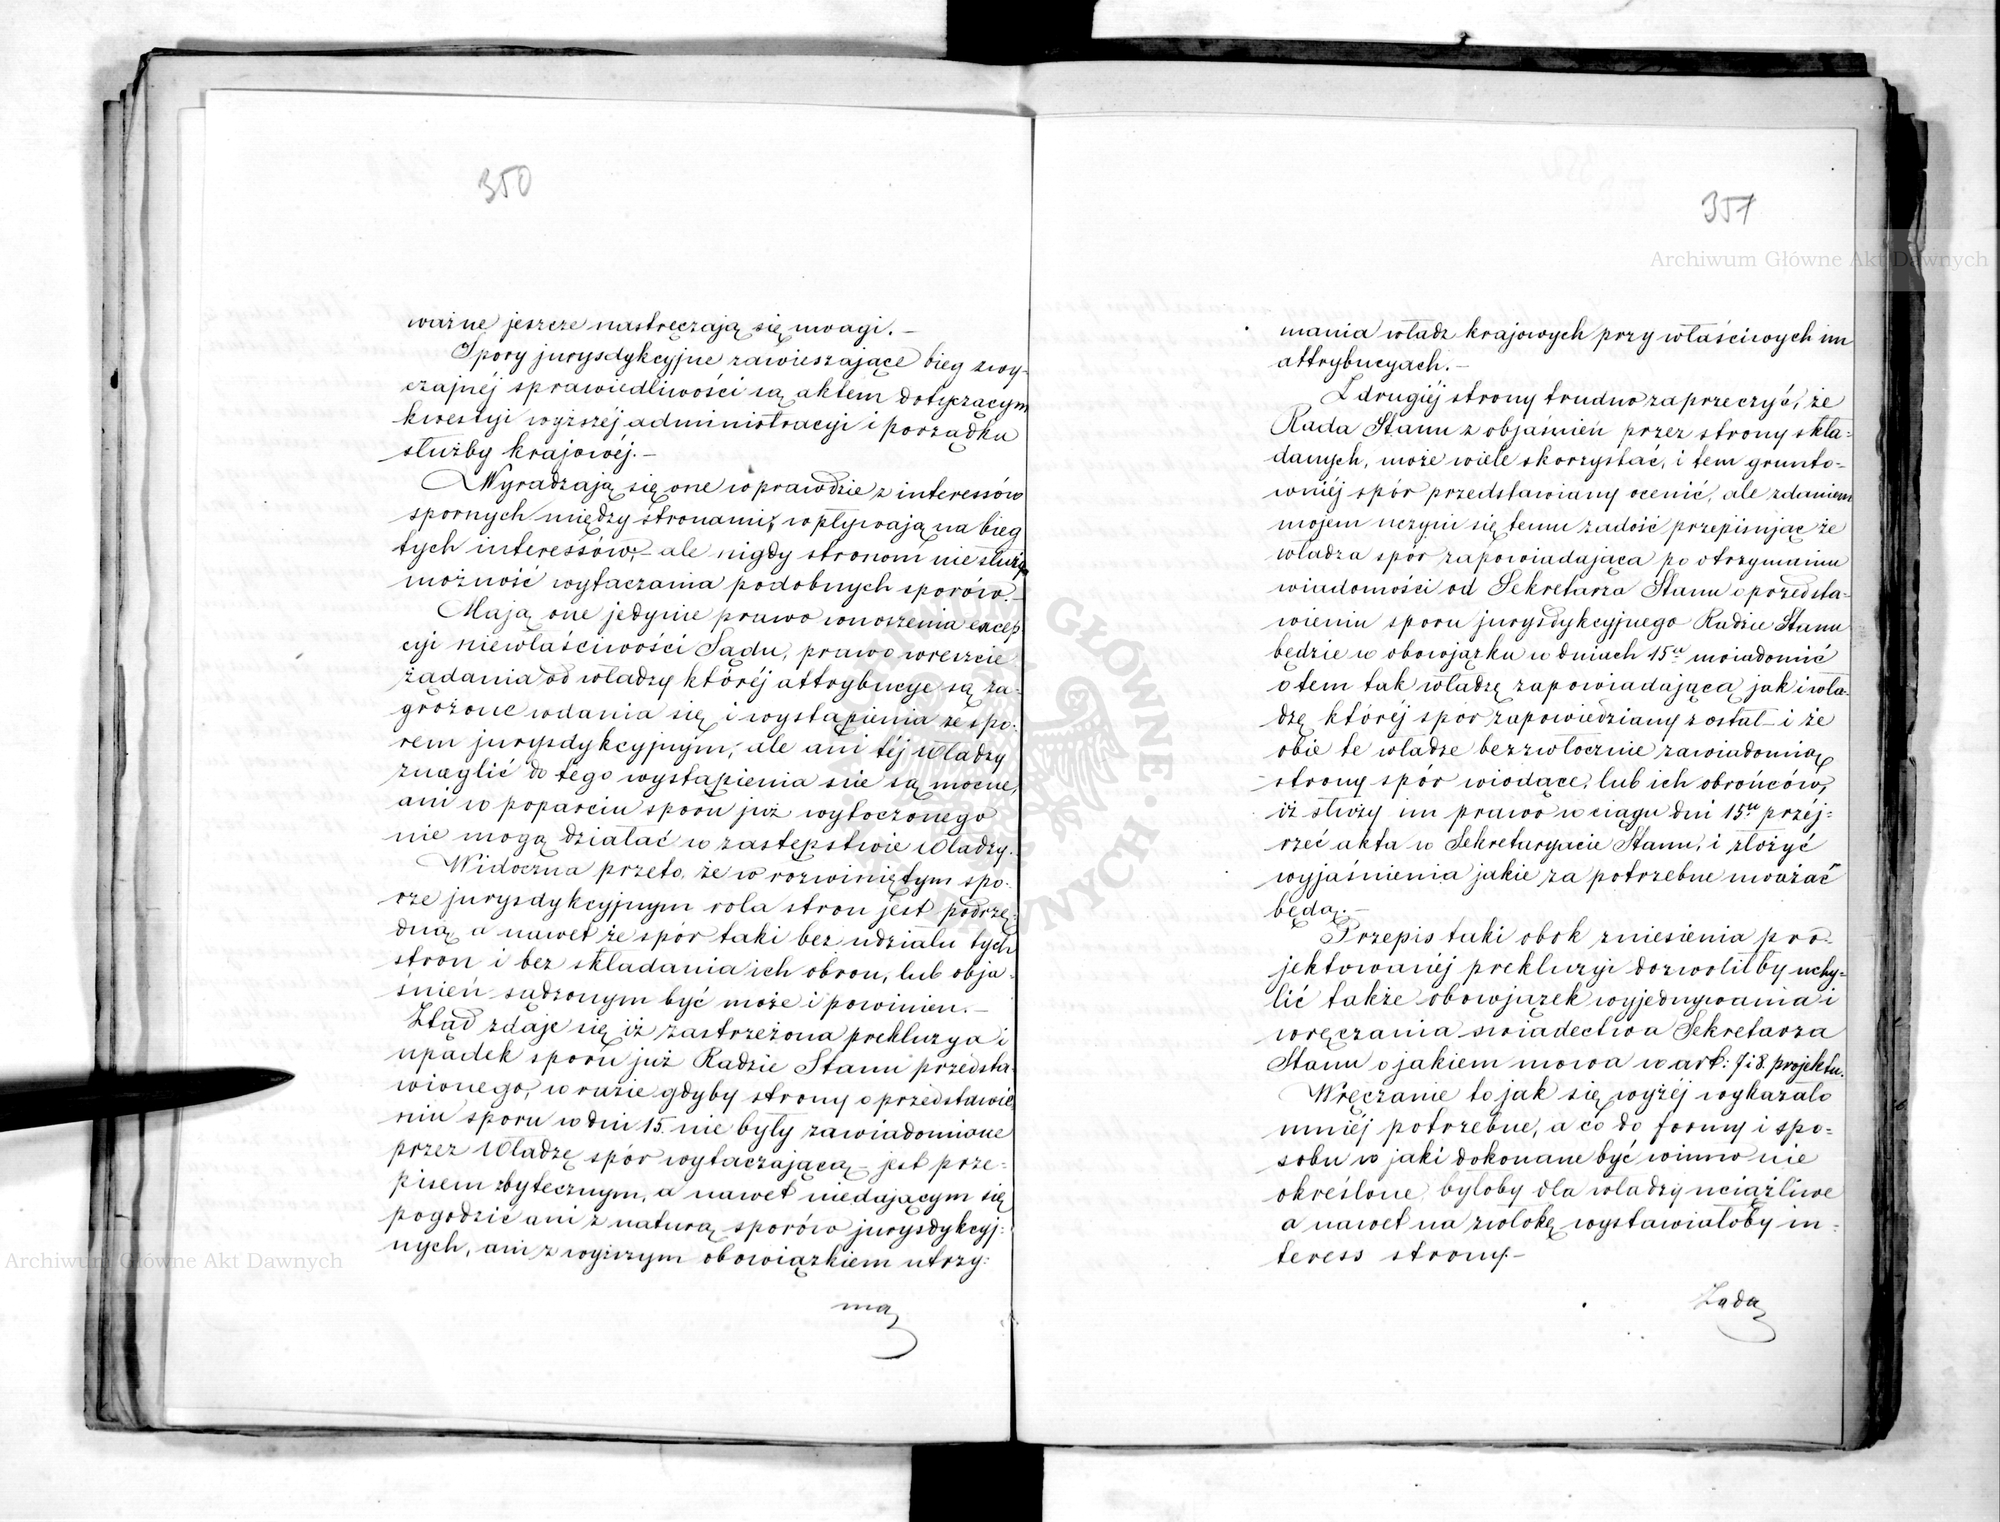 350
ważne jeszcze nastręczają się uwagi. –
Spory jurysdykcyjne zawieszające bieg zwy-
czajnéj sprawiedliwości są aktem dotyczącym
kwestyi wyższéj administracyi i porządku
służby krajowéj. –
Wyradzają się one wprawdzie z interessów
spornych między stronami, wpływają na bieg
tych interessów, – ale nigdy stronom nie służy
możność wytaczania podobnych sporów. –
Mają one jedynie prawo wnoszenia excep-
cyi niewłaściwości Sądu, prawo wreszcie
żądania od władzy któréj attrybucye są za-
grożone wdania się i wystąpienia ze spo-
rem jurysdykcyjnym; ale ani téj Władzy
znaglić do tego wystąpienia nie są mocne,
ani w poparciu sporu już wytoczonego
nie mogą działać w zastępstwie Władzy.
Widoczna przeto, że w rozwiniętym spo-
rze jurysdykcyjnym rola stron jest podrzę-
dną a nawet że spór taki bez udziału tych
stron i bez składania ich obron, lub obja-
śnień sądzonym być może i powinien. –
Ztąd zdaje się iż zastrzeżona prekluzya i
upadek sporu już Radzie Stanu przedsta-
wionego, w razie gdyby strony o przedstawie-
niu sporu w dni 15. nie były zawiadomione
przez Władzę spór wytaczającą – jest prze-
pisem zbytecznym, a nawet niedającym się
pogodzić ani z naturą sporów jurysdykcyj-
nych, ani z wyższym obowiązkiem utrzy-
ma
351
Archiwum Główne Akt Dawnych
mania władz krajowych przy właściwych im
attrybucyach. –
Z drugiéj strony trudno zaprzeczyć, że
Rada Stanu z objaśnień przez strony skła-
danych, może wiele skorzystać, i tem grunto-
wniéj spór przedstawiany ocenić, ale zdaniem
mojem uczyni się temu zadość przepisując że
władza spór zapowiadająca po otrzymaniu
wiadomości od Sekretarza Stanu o przedsta-
wieniu sporu jurysdykcyjnego Radzie Stanu
będzie w obowiązku w dniach 15tu uwiadomić
o tem tak władzę zapowiadającą jak i wła-
dzę któréj spór zapowiedziany został – i że
obie te władze bezzwłocznie zawiadomią
strony spór wiodące, lub ich obrońców,
iż służy im prawo w ciągu dni 15tu przéj-
rzeć akta w Sekretaryacie Stanu, i złożyć
wyjaśnienia jakie za potrzebne uważać
będą. –
Przepis taki obok zniesienia pro-
jektowanéj prekluzyi dozwoliłby uchy-
lić także obowiązek wyjednywania i
wręczania świadectwa Sekretarza
Stanu o jakiem mowa w art: 7 i 8. projektu.
Wręczanie to jak się wyżéj wykazało
mniéj potrzebne, a co do formy i spo-
sobu w jaki dokonane być winno nie
określone, byłoby dla władzy uciążliwe
a nawet na zwłokę wystawiałoby in-
teress strony. –
Żąda
Archiwum Główne Akt Dawnych